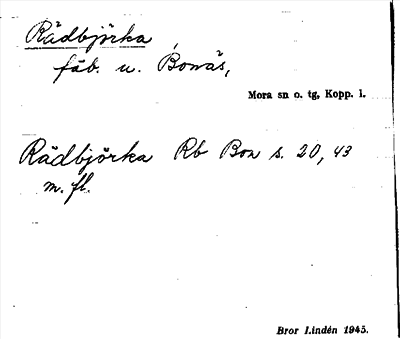 Rädbjörka
fäb. u. Bonäs,
Mora sn o. tg, Kopp. l.
Rädbjörka Rb Bon s. 20, 43
m. fl.
Bror Lindén 1945.